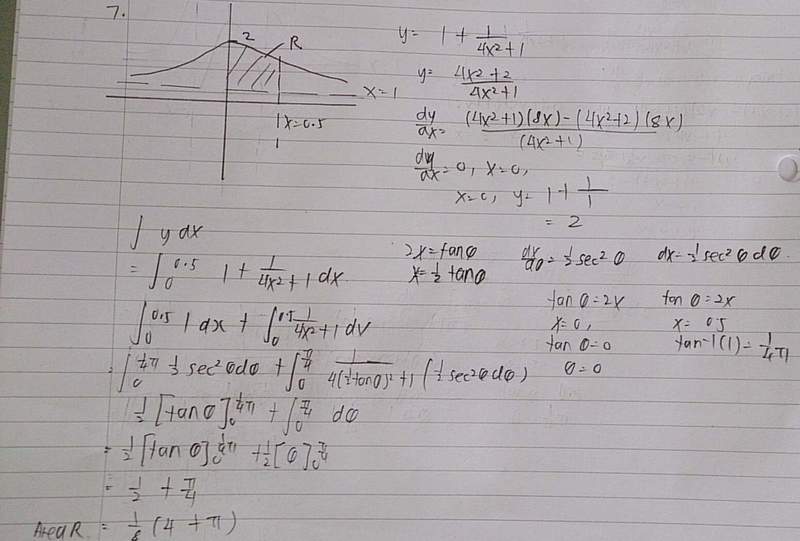 7.
2
R
x=1
x=0.5
y= 1 + 1/(4x²+1)
y= (4x²+2)/(4x²+1)
dy/dx= ((4x²+1)(8x)-(4x²+2)(8x))/(4x²+1)
dy/dx=0, x=0,
x=0, y= 1 + 1/1
= 2
∫ y dx
= ∫₀^0.5 1 + 1/(4x²+1) dx
2x=tanθ dx/dθ=½sec²θ dx=½sec²θdθ.
x=½tanθ
tanθ=2x tanθ=2x
x=0, x=0.5
tanθ=0 tan-1(1)=¼π
θ=0
∫₀^0.5 1dx + ∫₀^0.5 1/(4x²+1) dx
= ∫₀^¼π ½sec²θdθ + ∫₀^π/4 1/(4(½tanθ)²+1) (½sec²θdθ)
½[tanθ]₀^¼π + ∫₀^π/4 dθ
= ½[tanθ]₀^¼π +½[θ]₀^π/4
= ½ + π/4
Area R = ⅛(4+π)